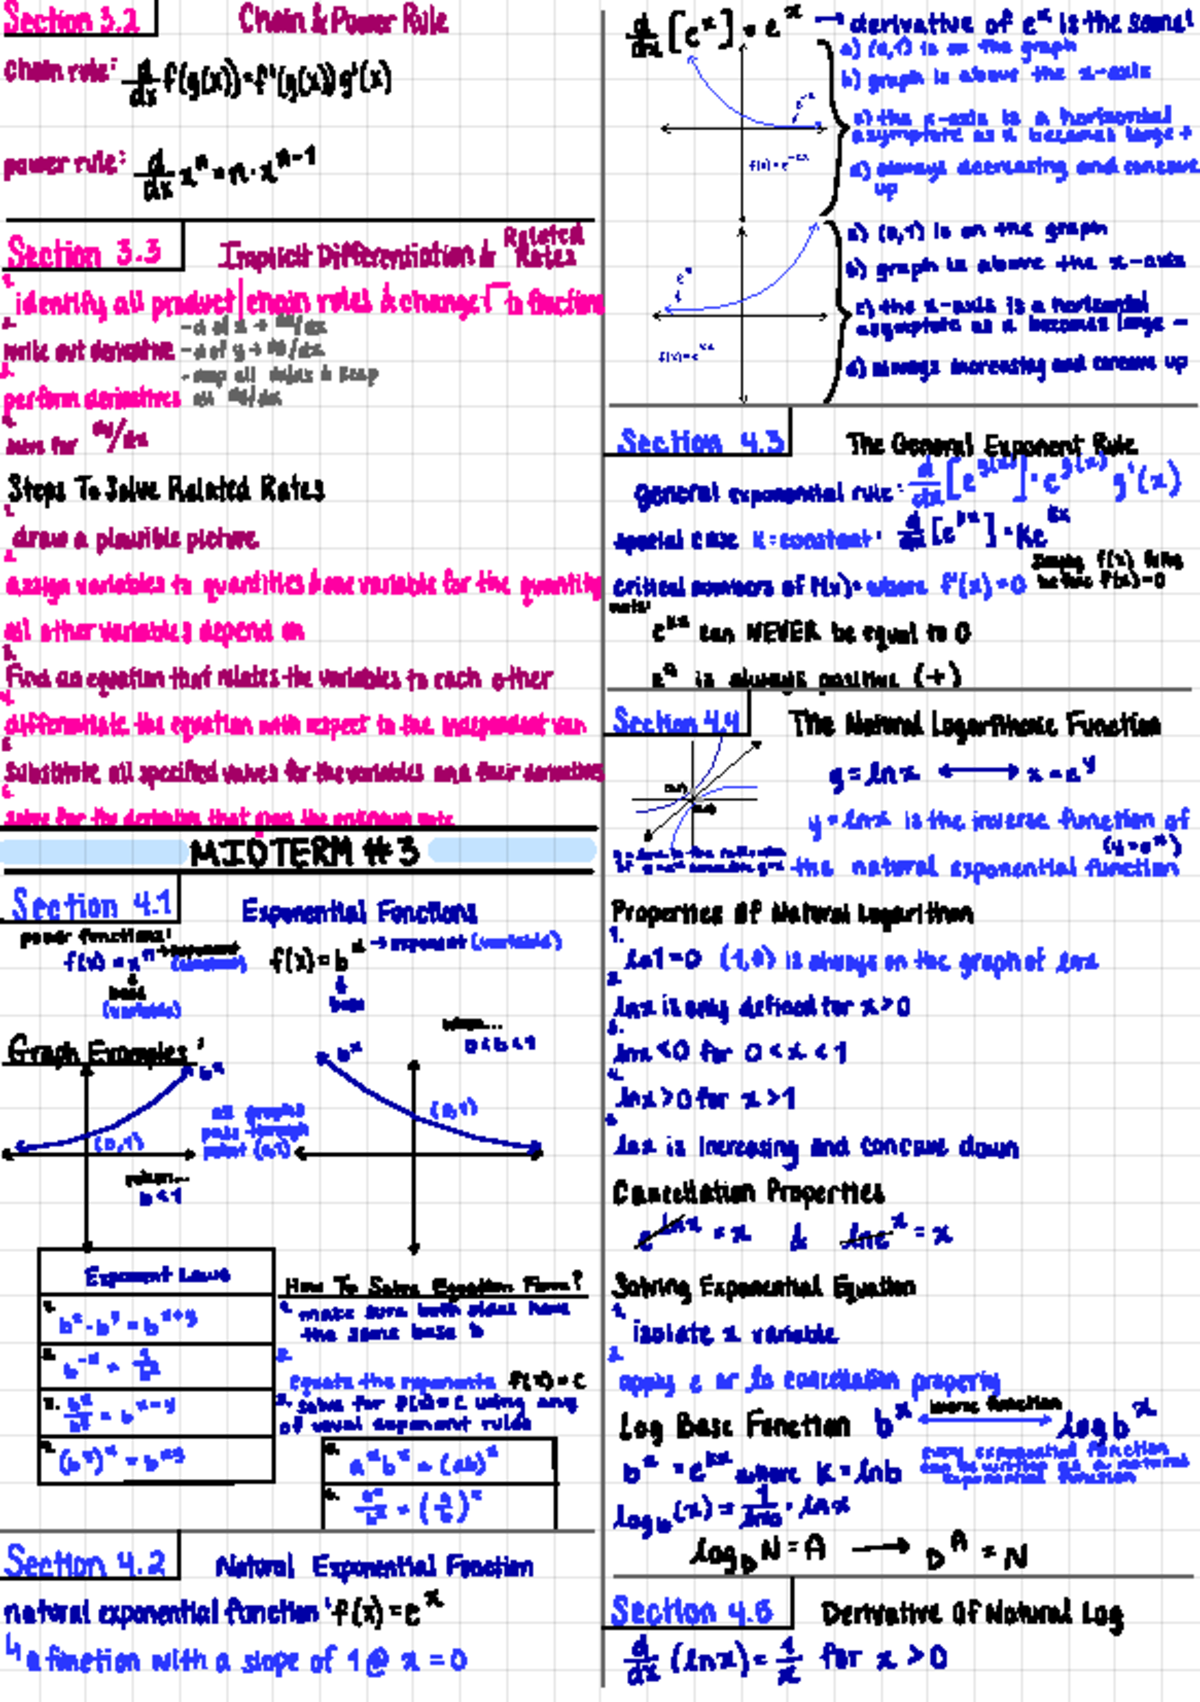 Section 3.2
Chain & Power Rule
chain rule: d/dx f(g(x)) = f'(g(x)) g'(x)
power rule: d/dx xⁿ = n · xⁿ⁻¹
Section 3.3
Implicit Differentiation & Related Rates
1. identify all product/chain rules & change √ to fractions
write out derivative
perform derivatives
solve for dy/dx
Steps To Solve Related Rates
1.
draw a plausible picture
2.
assign variables to quantities & one variable for the quantity
all other variables depend on
3.
Find an equation that relates the variables to each other
4.
differentiate the equation with respect to the independent var.
5.
Substitute all specified values for the variables and their derivatives
6.
solve for the derivative that gives the unknown rate
MIDTERM #3
Section 4.1
Exponential Functions
power functions:
f(x) = xⁿ → exponent (constant)
base
(variable)
f(x) = bˣ → exponent (variable)
base
Graph Examples:
bˣ
(0,1)
when...
b < 1
all graphs
pass through
point (0,1)
bˣ
when...
0 < b < 1
(0,1)
Exponent Laws
1. bˣ · bʸ = bˣ⁺ʸ
2. b⁻ˣ = 1/bˣ
3. bˣ/bʸ = bˣ⁻ʸ
4. (bʸ)ˣ = bˣʸ
How To Solve Equation Form?
1. make sure both sides have
the same base b
2.
equate the exponents f(x) = c
3. solve for f(x) = c using any
of usual exponent rules
5. aˣbˣ = (ab)ˣ
6. aˣ/bˣ = (a/b)ˣ
Section 4.2
Natural Exponential Function
natural exponential function: f(x) = eˣ
↳ a function with a slope of 1 @ x = 0
d/dx [eˣ] = eˣ → derivative of eˣ is the same!
a) (0,1) is on the graph
b) graph is above the x-axis
c) the x-axis is a horizontal
asymptote as x becomes large +
d) always decreasing and concave
up
a) (0,1) is on the graph
b) graph is above the x-axis
c) the x-axis is a horizontal
asymptote as x becomes large -
d) always increasing and concave up
Section 4.3
The General Exponent Rule
general exponential rule: d/dx [e^g(x)] = e^g(x) g'(x)
special case K = constant: d/dx [eᵏˣ] = Keᵏˣ
critical numbers of f(x) = where f'(x) = 0
note:
eᵏˣ can NEVER be equal to 0
eᵃ is always positive (+)
Section 4.4
The Natural Logarithmic Function
y = ln x ⟷ x = eʸ
y = ln x is the inverse function of
(y = eˣ)
the natural exponential function
Properties of Natural Logarithm
1.
ln 1 = 0 (1,0) is always on the graph of ln x
2.
ln x is only defined for x > 0
3.
ln x < 0 for 0 < x < 1
4.
ln x > 0 for x > 1
5.
ln x is increasing and concave down
Cancellation Properties
e^ln x = x & ln eˣ = x
Solving Exponential Equation
1.
isolate x variable
2.
apply e or ln cancellation property
Log Base Function bˣ inverse function log bˣ
bˣ = eᵏˣ where K = ln b
every exponential function
can be written as a natural
exponential function
log_b (x) = 1/ln b · ln x
log_b N = A → b^A = N
Section 4.5
Derivative Of Natural Log
d/dx (ln x) = 1/x for x > 0